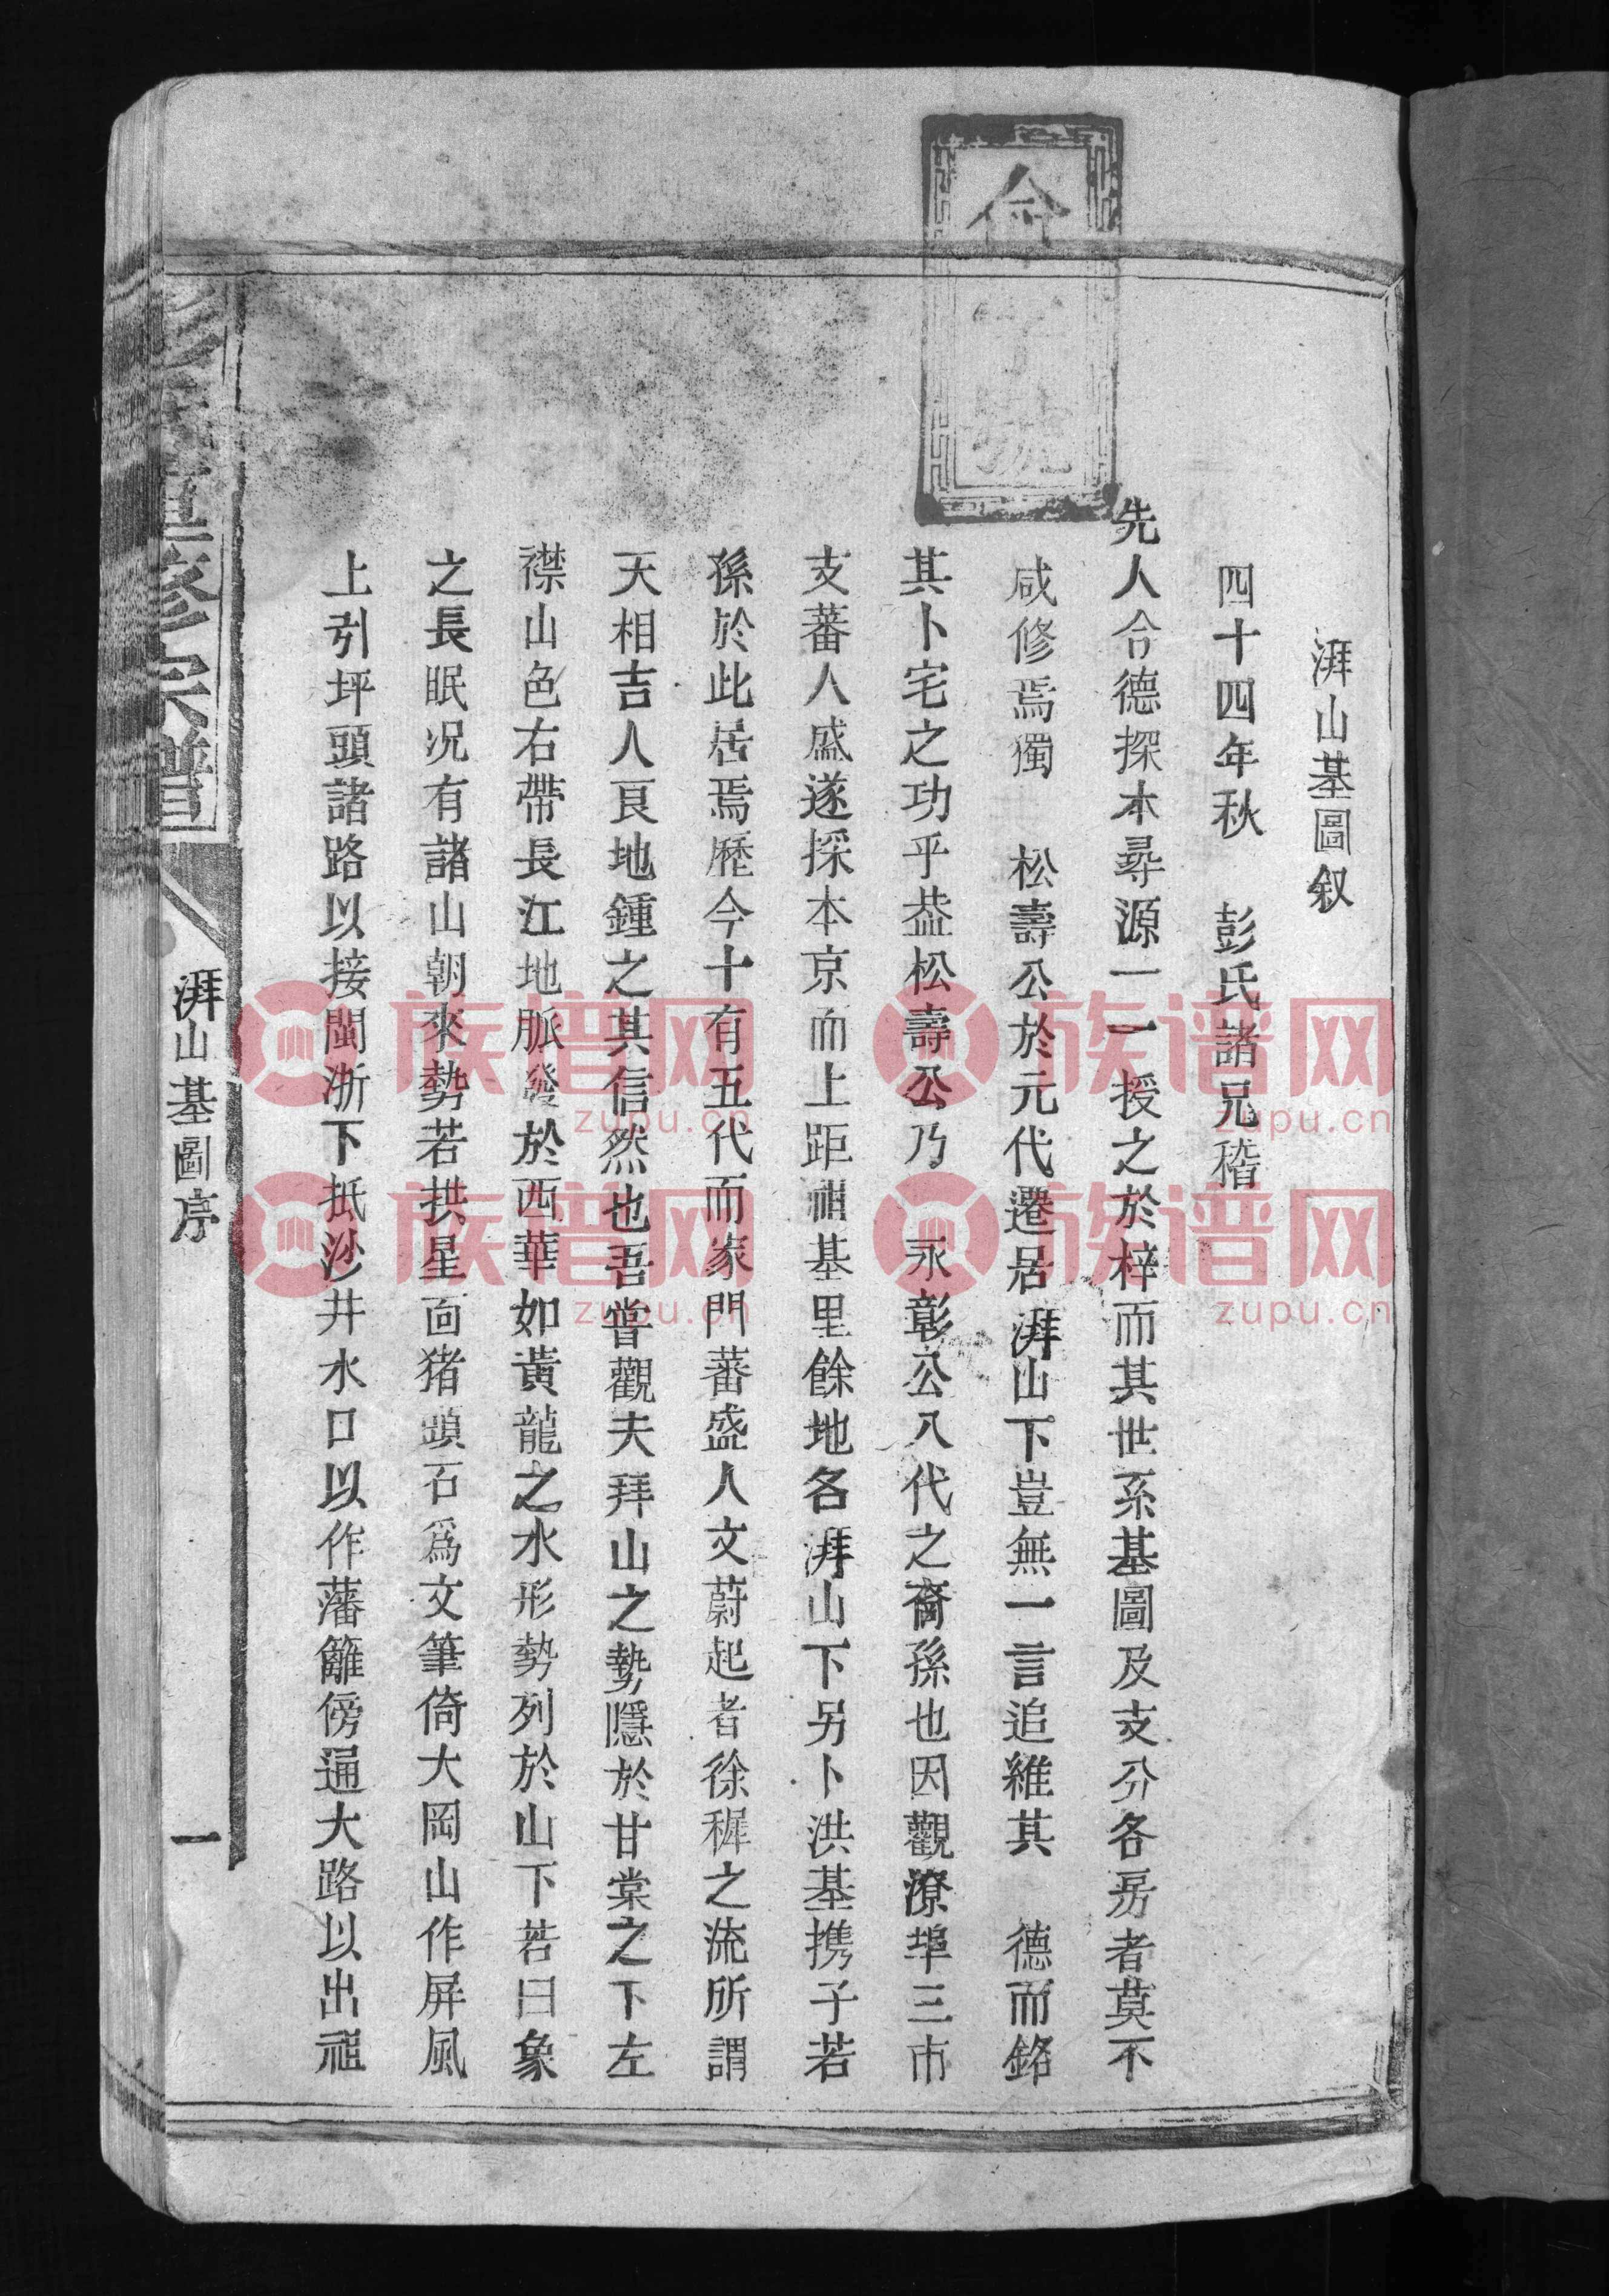 命字號
湃山基圖叙
四十四年秋 彭氏諸兄稽
先人令德探本尋源一一授之於梓而其世系基圖及支分各房者莫不
咸修焉獨 松壽公於元代遷居湃山下豈無一言追維其 德而銘
其卜宅之功乎葢松壽公乃 永彰公八代之裔孫也因觀潦埠三市
支蕃人盛遂採本京而上距祖基里餘地各湃山下另卜洪基携子若
孫於此居焉歷今十有五代而家門蕃盛人文蔚起者徐穉之流所謂
天相吉人良地鍾之其信然也吾嘗觀夫拜山之勢隱於甘棠之下左
襟山色右帶長江地脈發於西華如黃龍之水形勢列於山下若曰象
之長眠况有諸山朝來勢若拱星面猪頭石為文筆倚大岡山作屏風
上引坪頭諸路以接閩浙下抵沙井水口以作藩籬傍通大路以出祖
彭氏重修宗譜
湃山基圖序
一
族谱网
zupu.cn
族谱网
zupu.cn
族谱网
zupu.cn
族谱网
zupu.cn